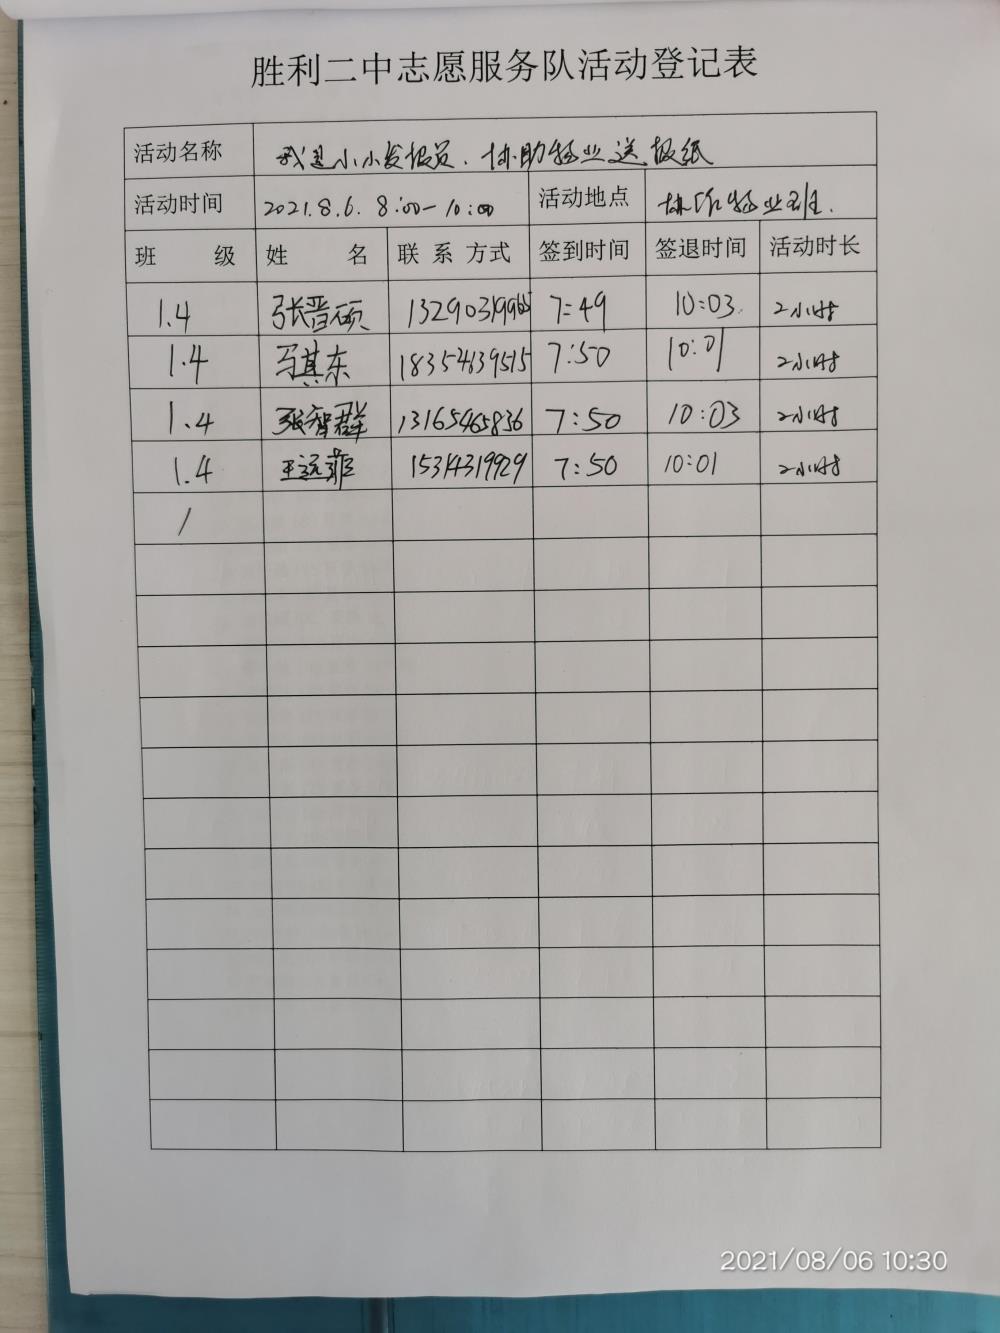 胜利二中志愿服务队活动登记表
活动名称 我是小小发报员.协助物业送报纸
活动时间 2021.8.6. 8:00-10:00 活动地点 物业班.
班 级 姓 名 联 系 方式 签到时间 签退时间 活动时长
1.4 张晋硕 7:49 10:03. 2小时
1.4 马其东 18354639515 7:50 10:01 2小时
1.4 张智群 13165465836 7:50 10:03 2小时
1.4 王远菲 15314319929 7:50 10:01 2小时
/
2021/08/06 10:30